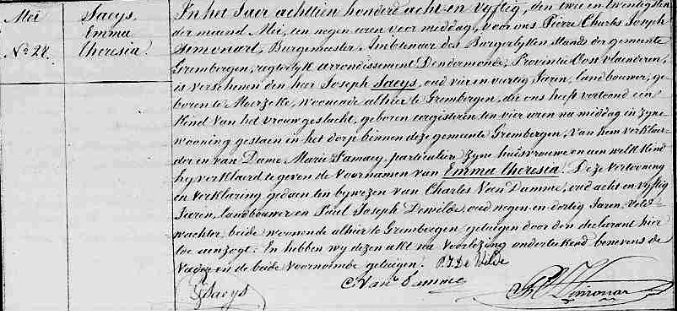 Mei
N° 28.
Saeys
Emma
Theresia.
In het Jaer achttien honderd acht en vyftig, den twee en twintigsten
der maend Mei, ten negen uren voor middag, voor ons Pierre Charles Joseph
Burgemeester, Ambtenaer des Burgerlyken Stands der gemeente
Grembergen, regterlyk arrondissement Dendermonde, Provintie Oost Vlaenderen,
is verschenen den heer Joseph Saeys, oud vier en veertig Jaren, landbouwer, ge-
boren te Moerzeke, woonende alhier te Grembergen, die ons heeft vertoond een
Kind van het vrouwgeslacht, geboren eergisteren ten vier uren na middag in zyne
wooning gestaen in het dorp binnen deze gemeente Grembergen, van hem verklaer-
der en van Dame Marie particuliere zyne huisvrouwe en aen welk Kind
hy verklaerd te geven de Voornamen van Emma Theresia. Deze Vertooning
en Verklaring gedaen ten bywezen van Charles Van Damme, oud acht en vyftig
Jaren, landbouwer en Paul Joseph Dewilde, oud negen en dertig Jaren, veld-
wachter, beide woonende alhier te Grembergen, getuigen door den declarant hier
toe aenzogt. En hebben wy dezen akt na Voorlezing onderteekend benevens de
Vader en de beide voornoemde getuigen. P. J. De Wilde
J Saeys
C. Van Damme